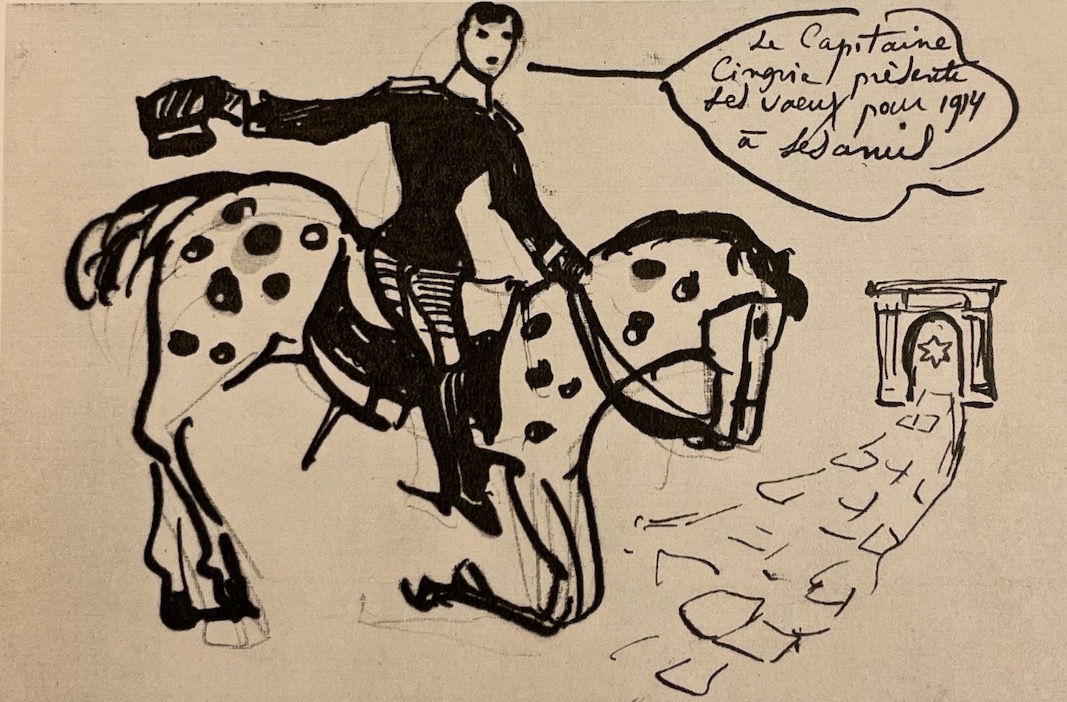 Le Capitaine
Cingria présente
ses vœux pour 1914
à ses amis